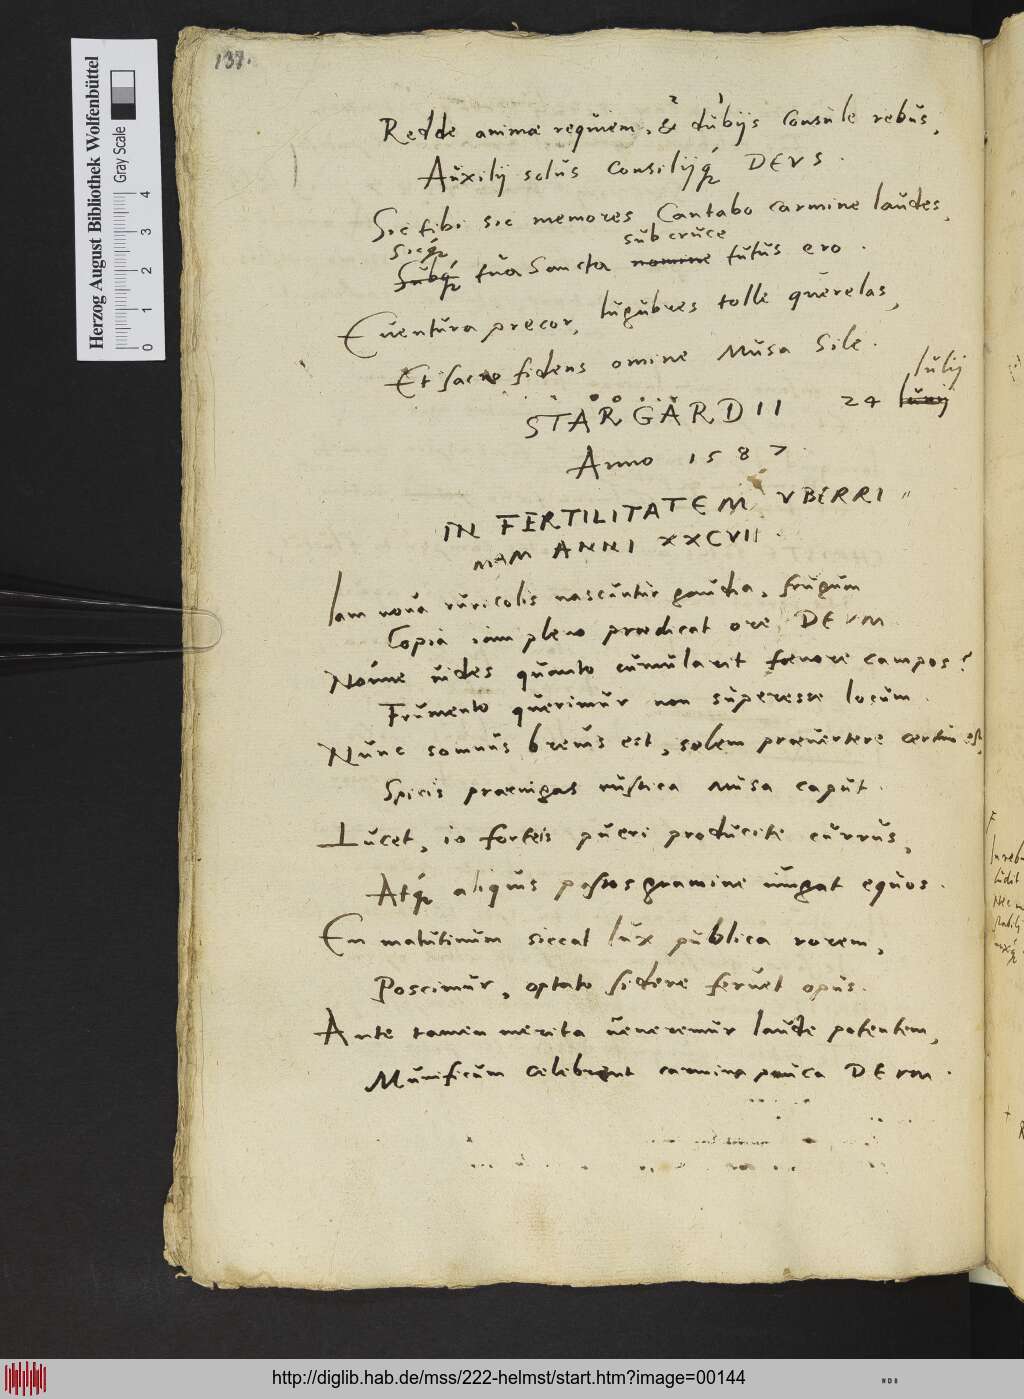 137.
Redde animæ requiem, & dubijs consule rebus,
Auxilij solus consilijq́ DEVS.
Sic tibi sic memores cantabo carmine laudes,
Sicq́ sub cruce
Subq́ tua Sancta nomine tutus ero.
Euentura precor, lugubres tolle querelas,
Et sacro fidens omine Musa Sile.
Iulij
STARGARDII 24 Iunij
Anno 1587
IN FERTILITATEM VBERRI"
MAM ANNI XXCVII.
Iam noua ruricolis nascuntur gaudia, frugum
Copia iam pleno prædicat ore DEVM
Nónne uides quanto cumularit fœnore campos?
Frumento querimur non superesse locum.
Nunc somnus breuis est, solem præuertere certum est,
Spicis præcingas rustica Musa caput.
Lucet, io forteis pueri producite currus,
Atq́ aliquis pastos gramine iungat equos.
En matutinum siccat lux publica rorem,
Poscimur, optato sidere feruet opus.
Ante tamen merita ueneremur laude potentem,
Munificum celebrent carmina pauca DEVM.
Herzog August Bibliothek Wolfenbüttel
Gray Scale
0 1 2 3 4
http://diglib.hab.de/mss/222-helmst/start.htm?image=00144